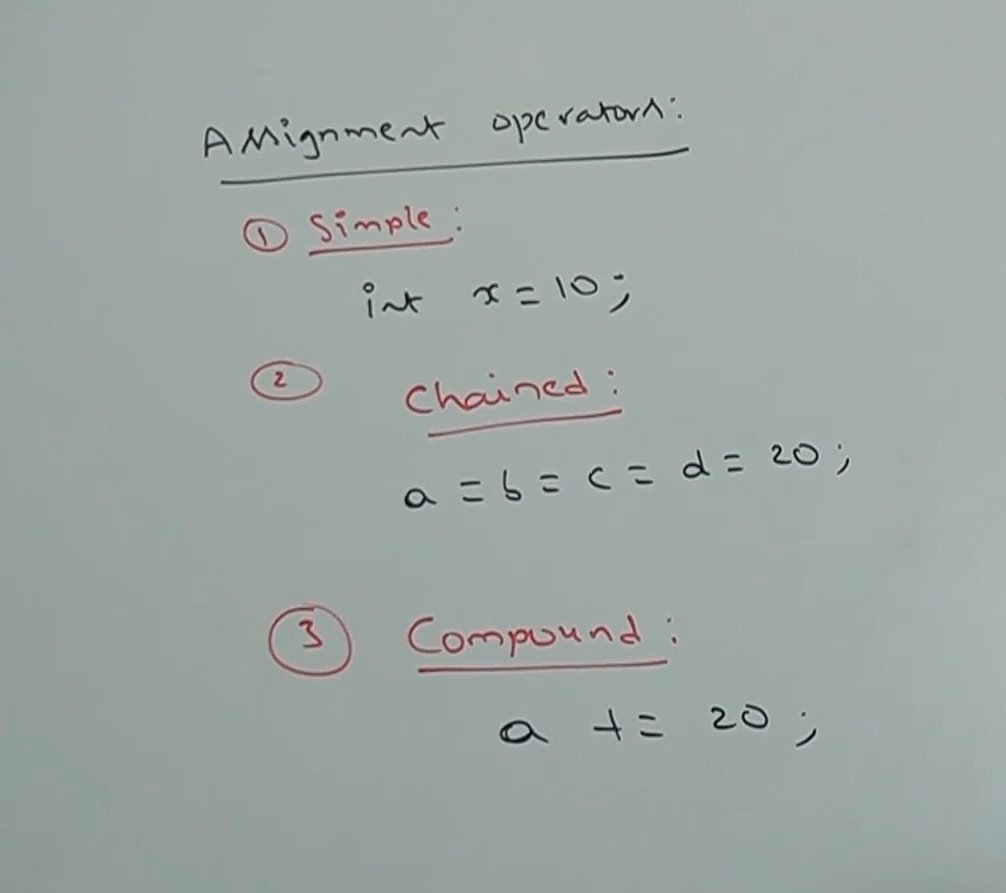 Assignment operators:
① Simple:
int x = 10;
② Chained:
a = b = c = d = 20;
③ Compound:
a += 20;